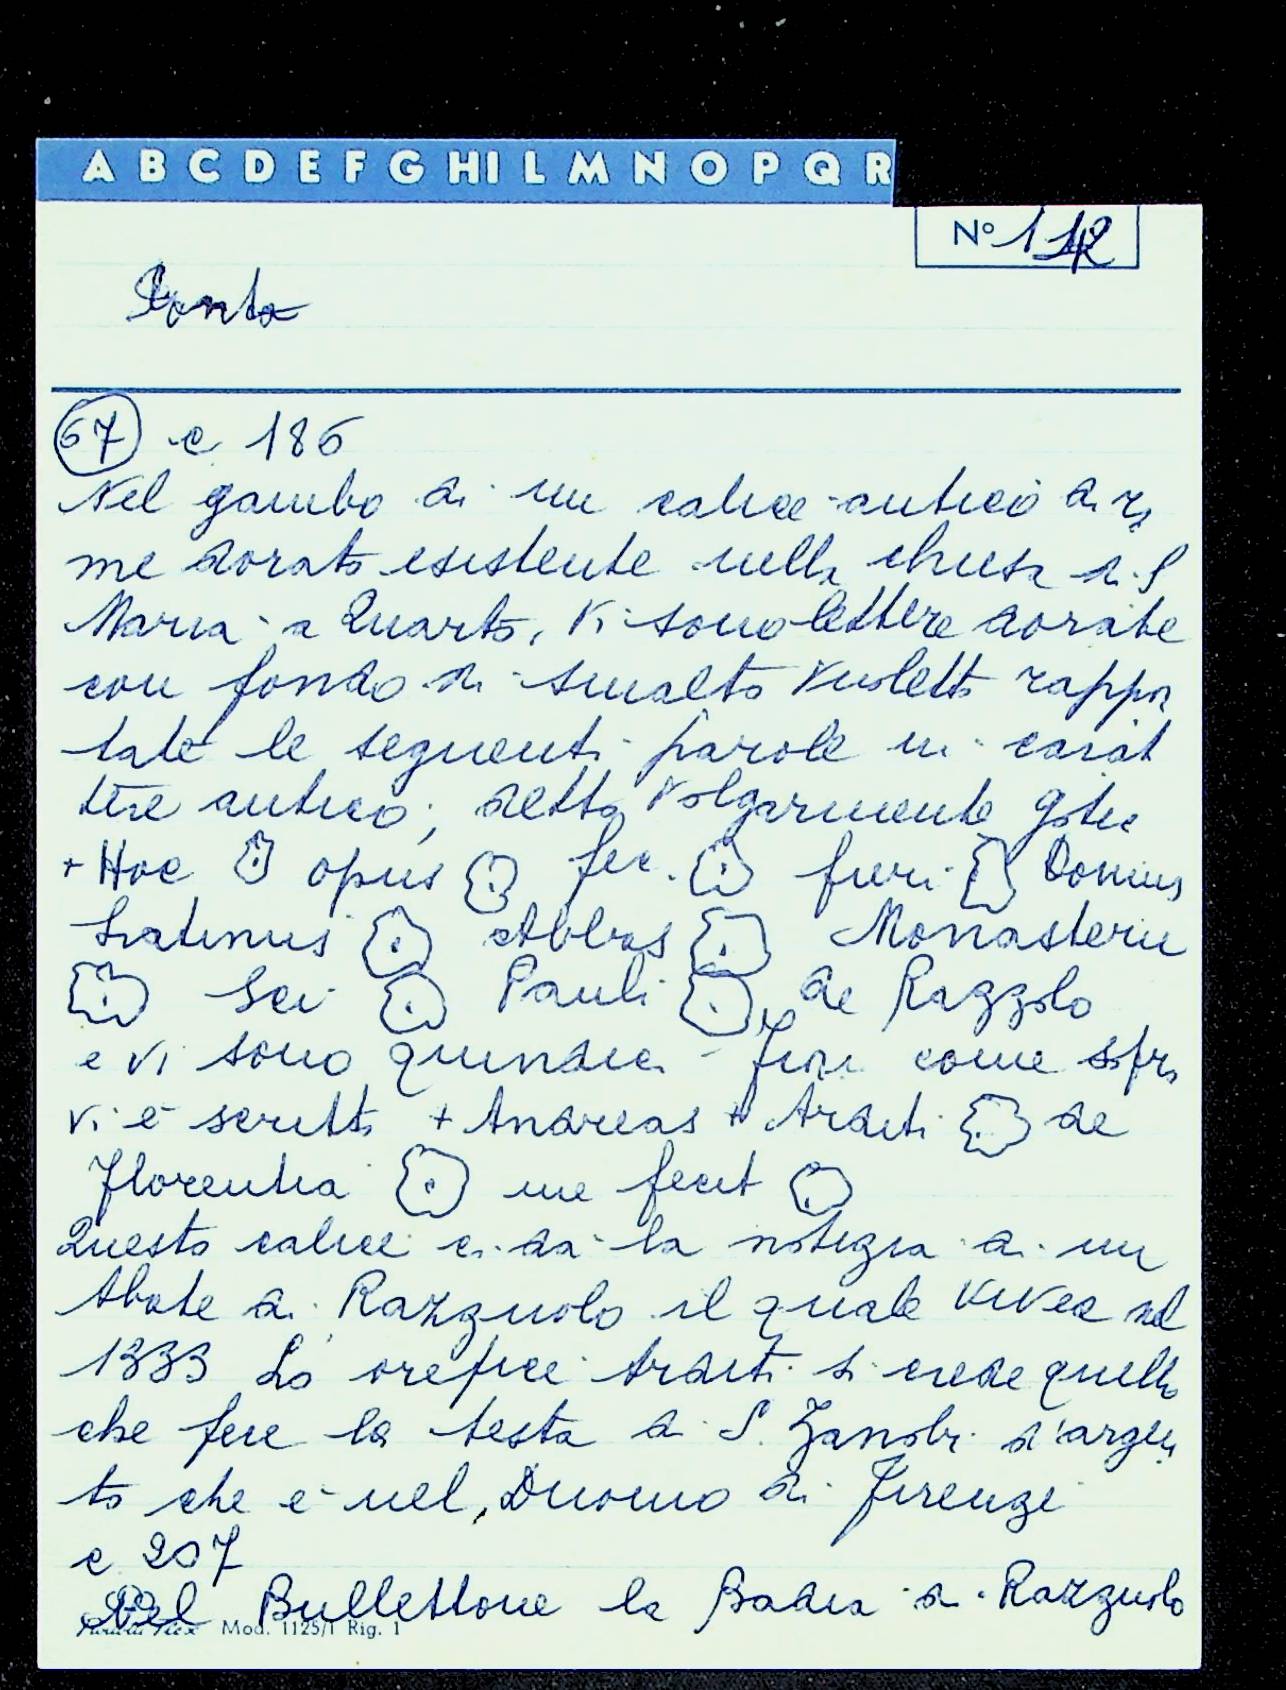 A B C D E F G HI L M N O P Q R
N° 112
67 c 186
Nel gambo di un calice antico di ra
me dorato esistente nella chiesa di S
Maria a Quarto, vi sono lettere dorate
con fondo di smalto violetto rappor
tate le seguenti parole in carat
tere antico, detto volgarmente gotic
+ Hoc opus fec. fieri Domnus
Latinus Abbas Monasterii
Sci Pauli de Razzolo
e vi sono quindici fiori come sopra
vi è scritto + Andreas + Arditi de
Florentia me fecit
Questo calice ci dà la notizia di un
Abate di Razzuolo il quale vivea nel
1333 Lo orefice Arditi si crede quello
che fece la testa di S. Zanobi d'argen
to che è nel Duomo di Firenze
c 207
Nel Bullettone la Badia di Razzuolo
Mod. 1125/1 Rig. 1